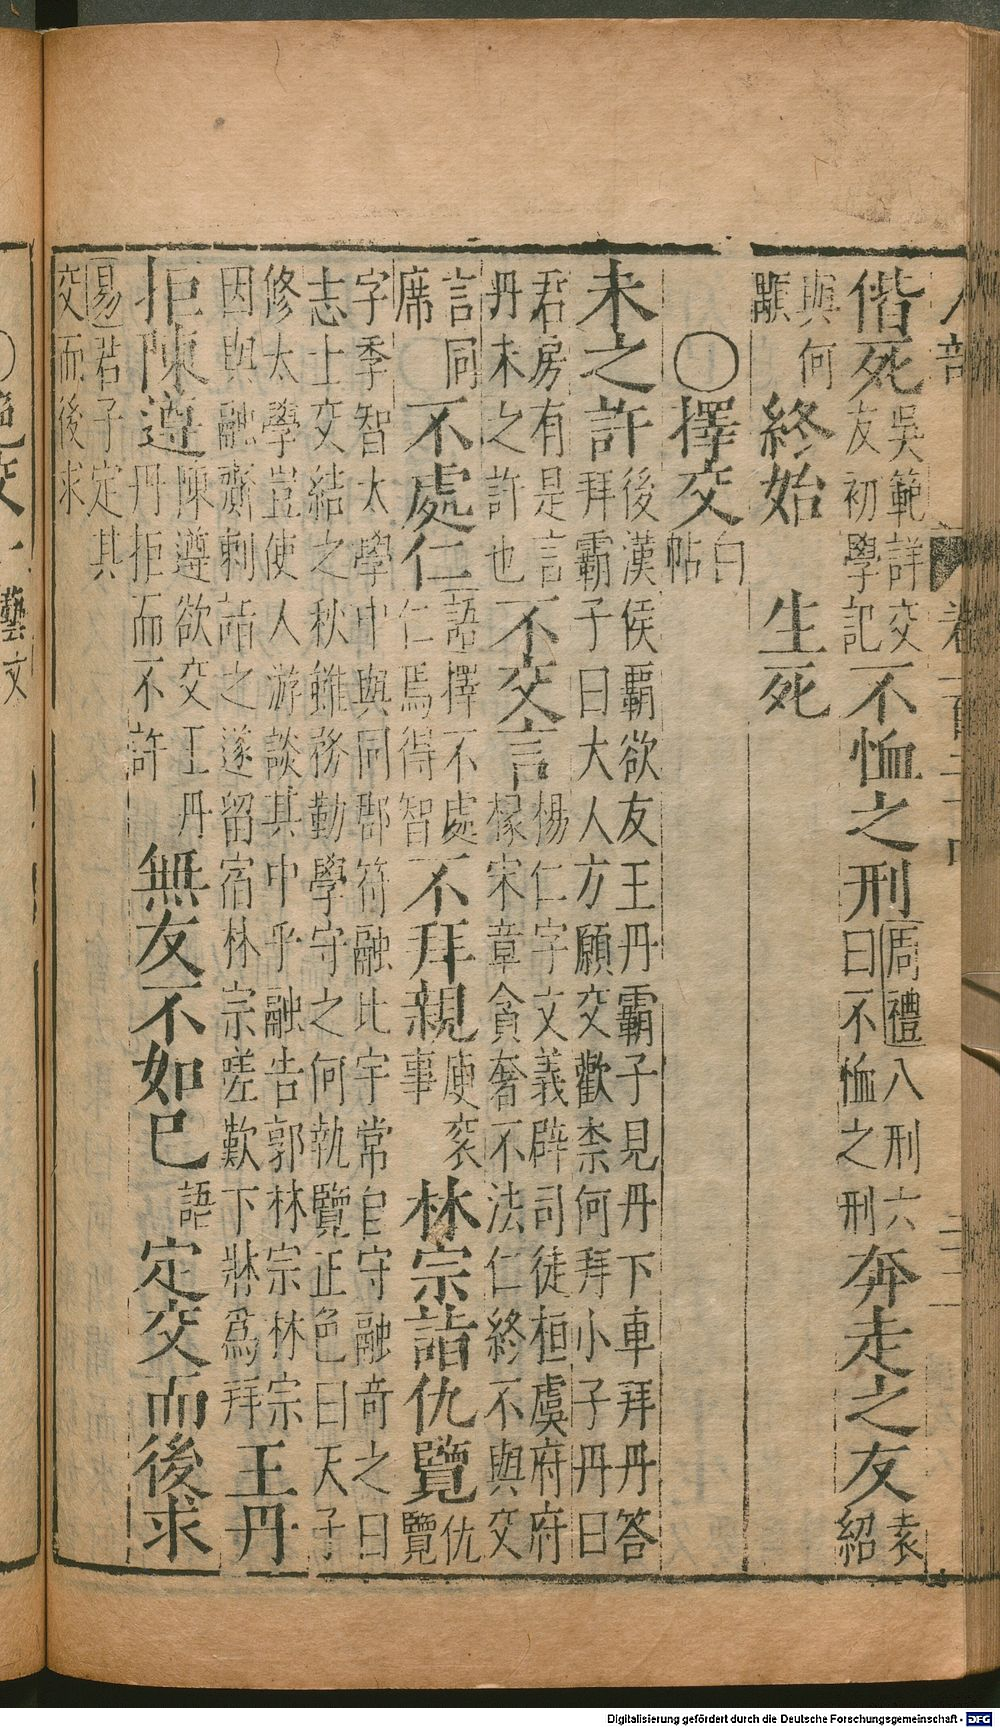 部 卷一百二十四
偕死 吳範詳交友初學記 不恤之刑 周禮八刑六曰不恤之刑 奔走之友 袁紹
與何顒 終始 生死
○擇交 白帖
未之許 後漢侯覇欲友王丹霸子見丹下車拜丹答拜霸子曰大人方願交歡柰何拜小子丹曰
君房有是言丹未之許也 不交言 楊仁字文義辟司徒桓虞府府椽宋章貪奢不法仁終不與交
言同席 不處仁 語擇不處仁焉得智 不拜親 庾袞事 林宗詣仇覽 仇覽
字季智太學中與同郡符融比宇常自守融奇之曰志士交結之秋雖務勤學守之何執覽正色曰天子
修太學豈使人游談其中乎融告郭林宗林宗因與融齎剌詣之遂留宿林宗嗟歎下牀爲拜 王丹
拒陳遵 陳遵欲交王丹丹拒而不許 無友不如已 語 定交而後求
易君子定其交而後求
藝文
Digitalisierung gefördert durch die Deutsche Forschungsgemeinschaft - DFG